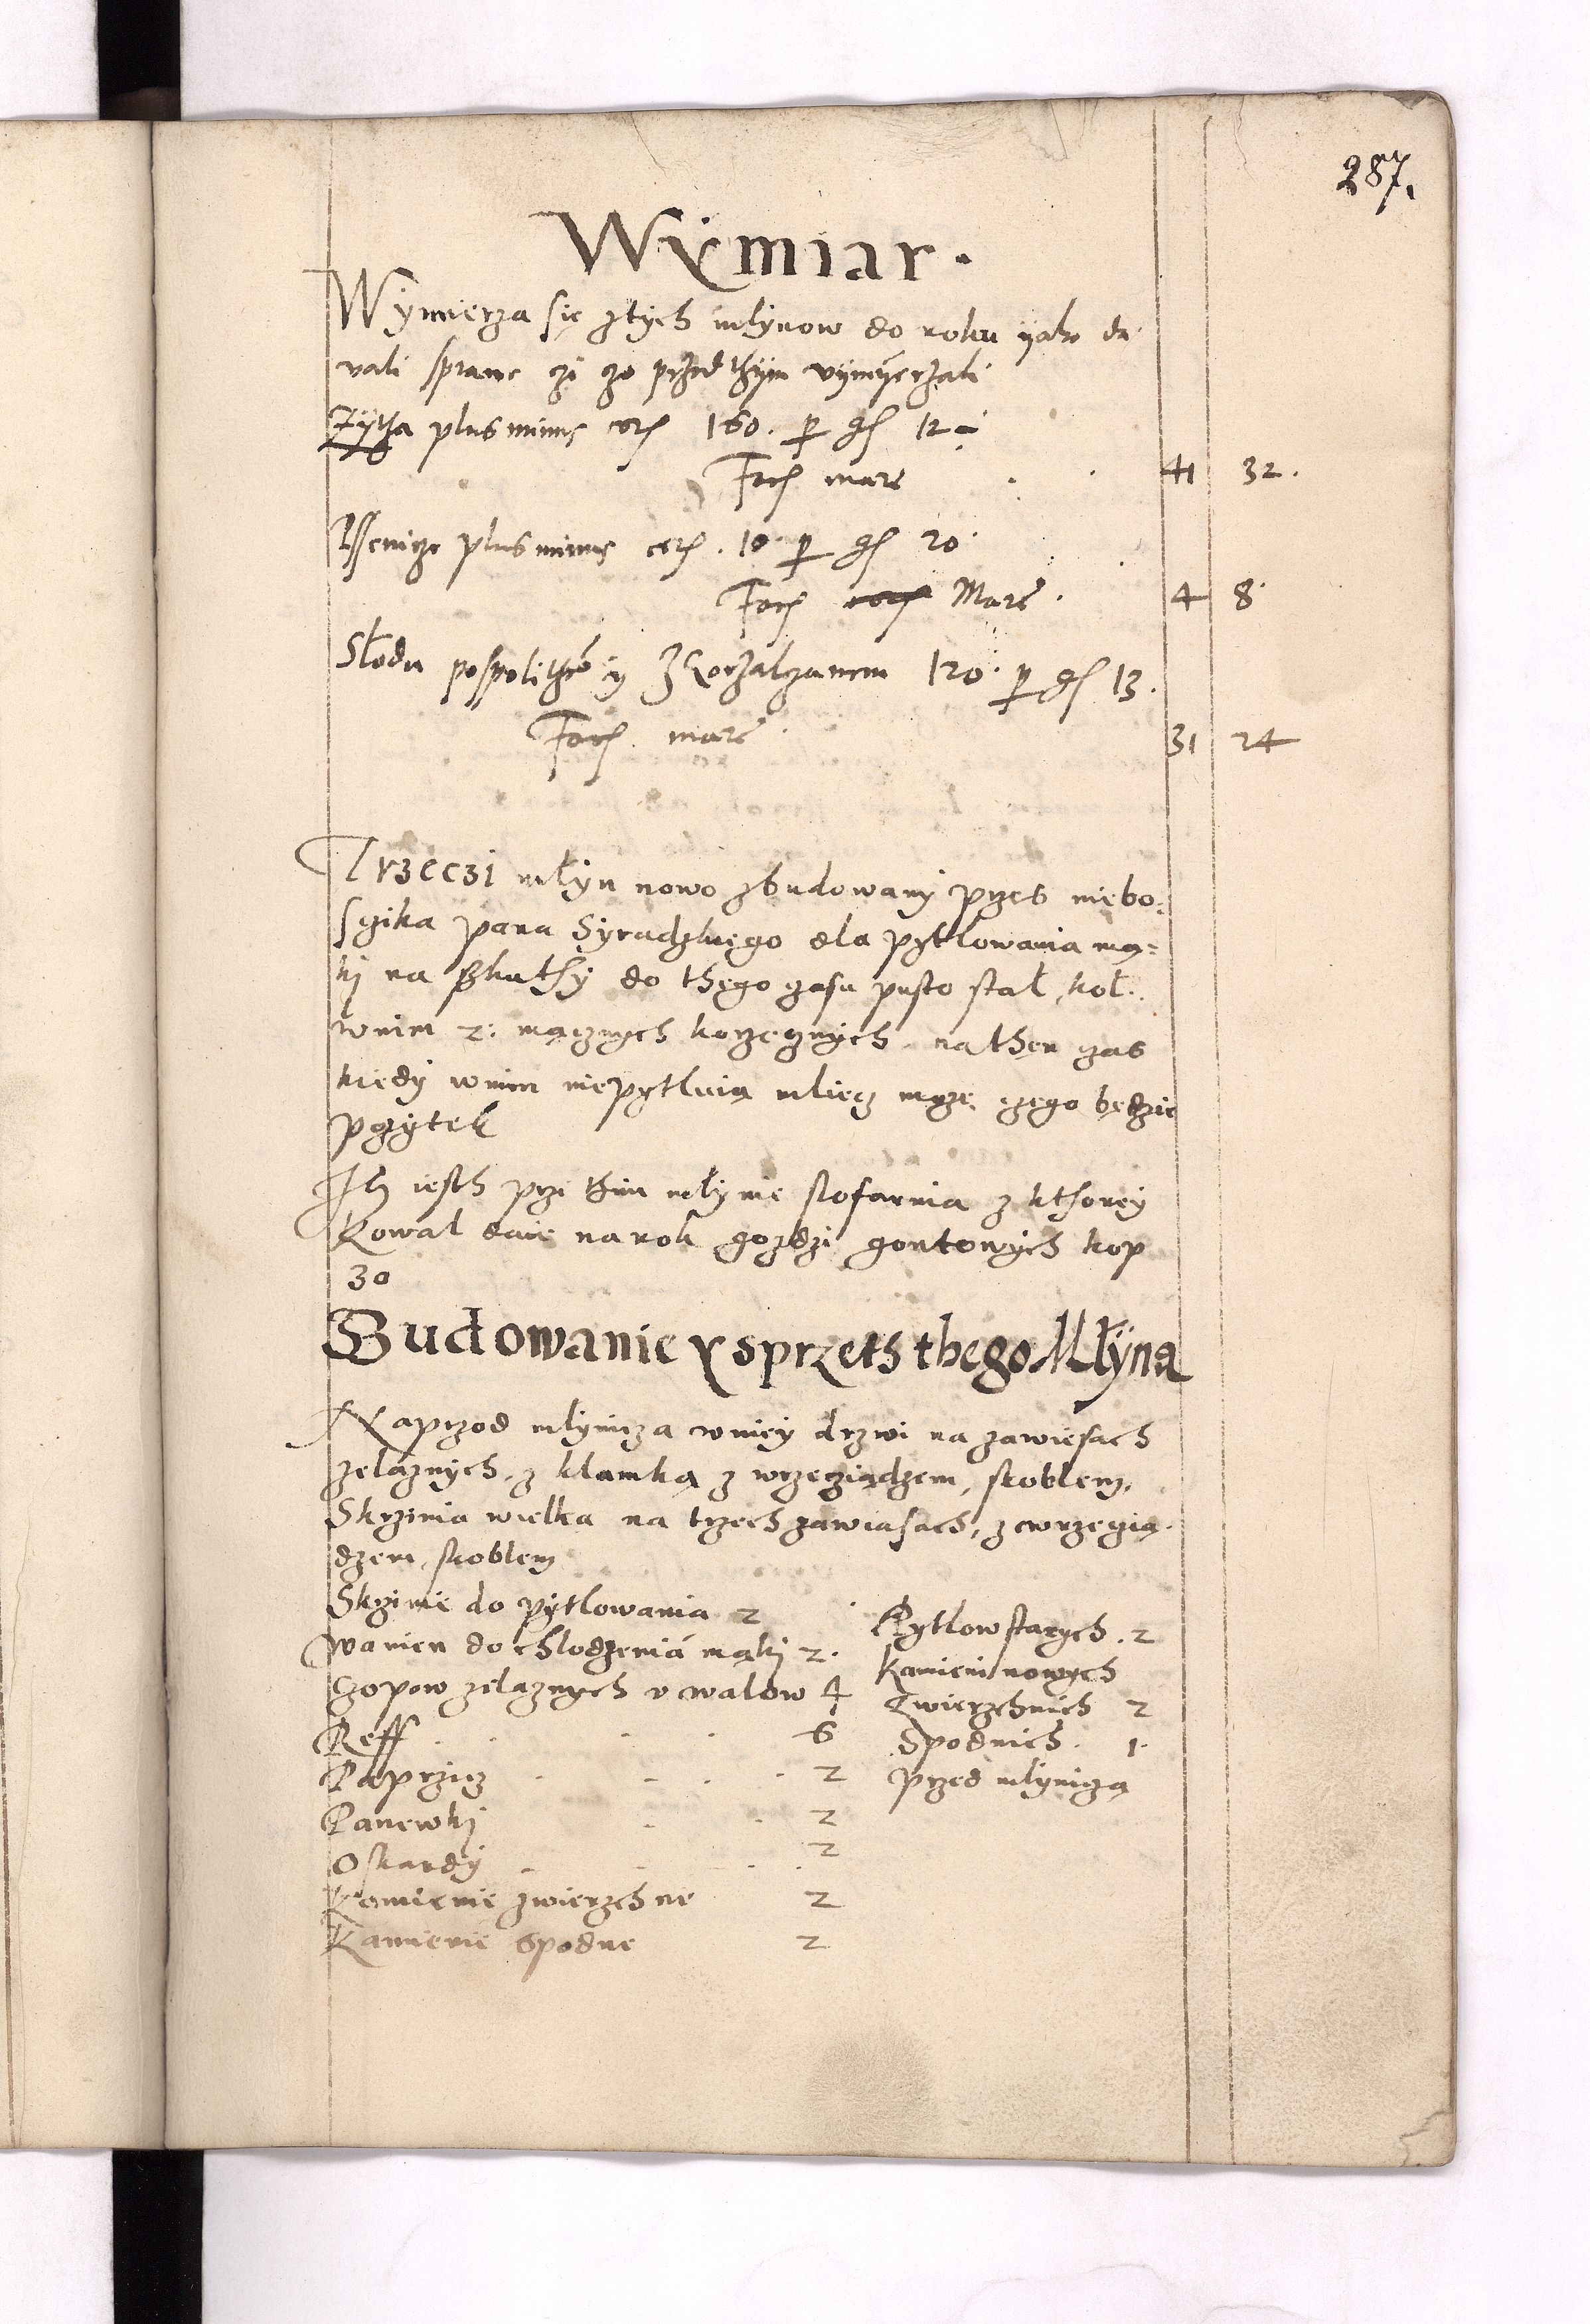 287.
Wymiar.
Wymierza się z tych mlynow do roku yako da
wali sprawe czi czo przedthym wymyerzali
Zytha plus minus cor 160. per gr 12 ÷
Facit marc 41 32.
Pssenicze plus minus cor. 10 per gr 20
Facit Marc. 4 8
Słodu pospolithe° y Zgorzalczanem 120. per gr 13.
Facit marc 31 24
Trzeczi młyn nowo zbudowany przes niebo:
sczika pana Syradzkiego dla pytlowania mą:
ki na Szkuthy do thego czasu pusto stał, kol.
wnim 2: mącznych korzecznych. na then czas
kiedy wnim niepytluią mliecz mogę, czego będzie
pozytek
Jest iesth prze thim młynie slofarnia z kthorey
Kowal daie na rok gozdzi gontowych kop
30
Budowanie y sprzeth thego Młyna
Naprzod mlynicza wniey drzwi na zawiesach
zelaznych, z klamką z wrzecziądzem, skoblem,
Skrzinia wielka na trzech zawiasach, z wrzeczią.
dzem, skoblem
Skrzinie do pytlowania 2
Wanien do chlodzenia mąki 2.
Czopow zelaznych v walow 4
Reff 6
Paprzicz 2
Panewki 2
Oskardy 2
Kamienie zwierzchne 2
Kamienie spodne 2
Pytlow starych. 2
Kamieni nowych
Zwierzchnich 2
Spodnich. 1.
przed mlyniczą